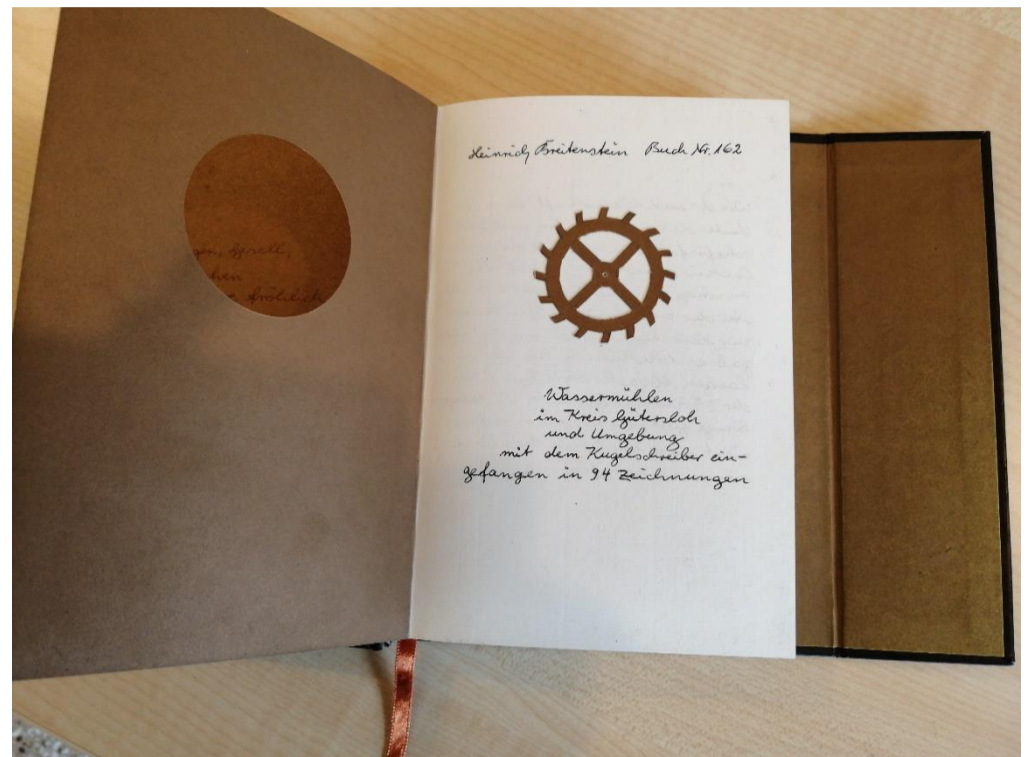 gen, Gesell,
hen
fröhlich
Heinrich Breitenstein Buch Nr. 162
Wassermühlen
im Kreis Gütersloh
und Umgebung
mit dem Kugelschreiber ein-
gefangen in 94 Zeichnungen